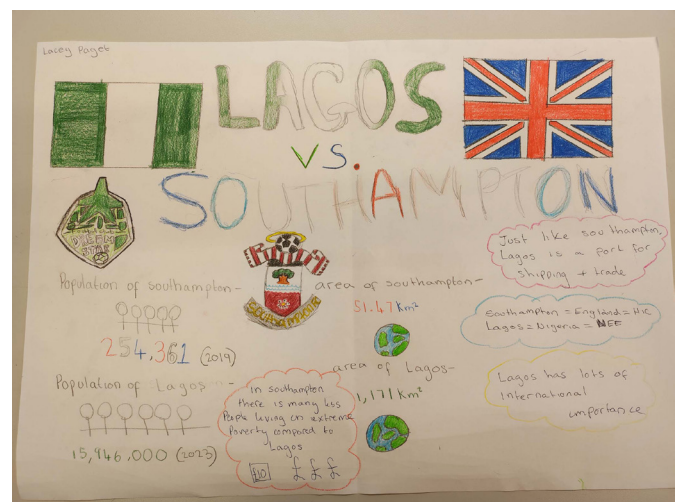 Lacey Paget
LAGOS
VS.
SOUTHAMPTON
Population of southampton -
254,361 (2019)
Population of Lagos -
15,946,000 (2023)
area of southampton -
51.47 Km²
area of Lagos -
1,171 Km²
SOUTHAMPTON
In southampton
there is many less
People living on extreme
Poverty compared to
Lagos
£10 £ £ £
Just like southampton,
Lagos is a port for
shipping + trade
Southampton = England = HIC
Lagos = Nigeria = NEE
Lagos has lots of
International
importance